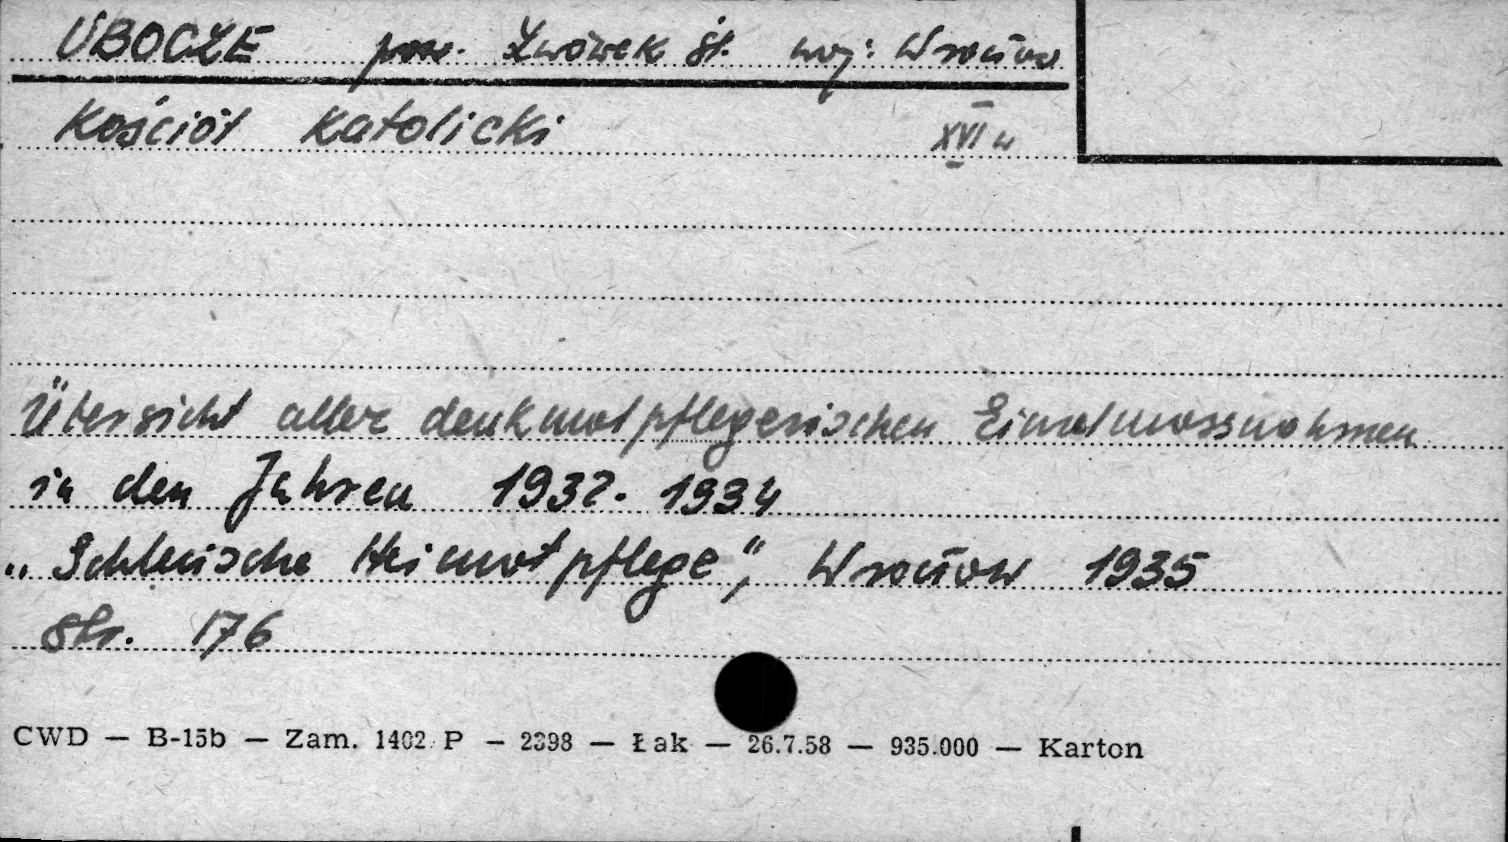 UBOCZE pow. Lwówek śl. woj: Wrocław
Kościół katolicki XVI w
Übersicht aller denkmalpflegerischen Einzelmassnahmen
in den Jahren 1932. 1934
„Schlesische Heimatpflege", Wrocław 1935
Str. 176
CWD — B-15b — Zam. 1402 P — 2398 — Łak — 26.7.58 — 935.000 — Karton